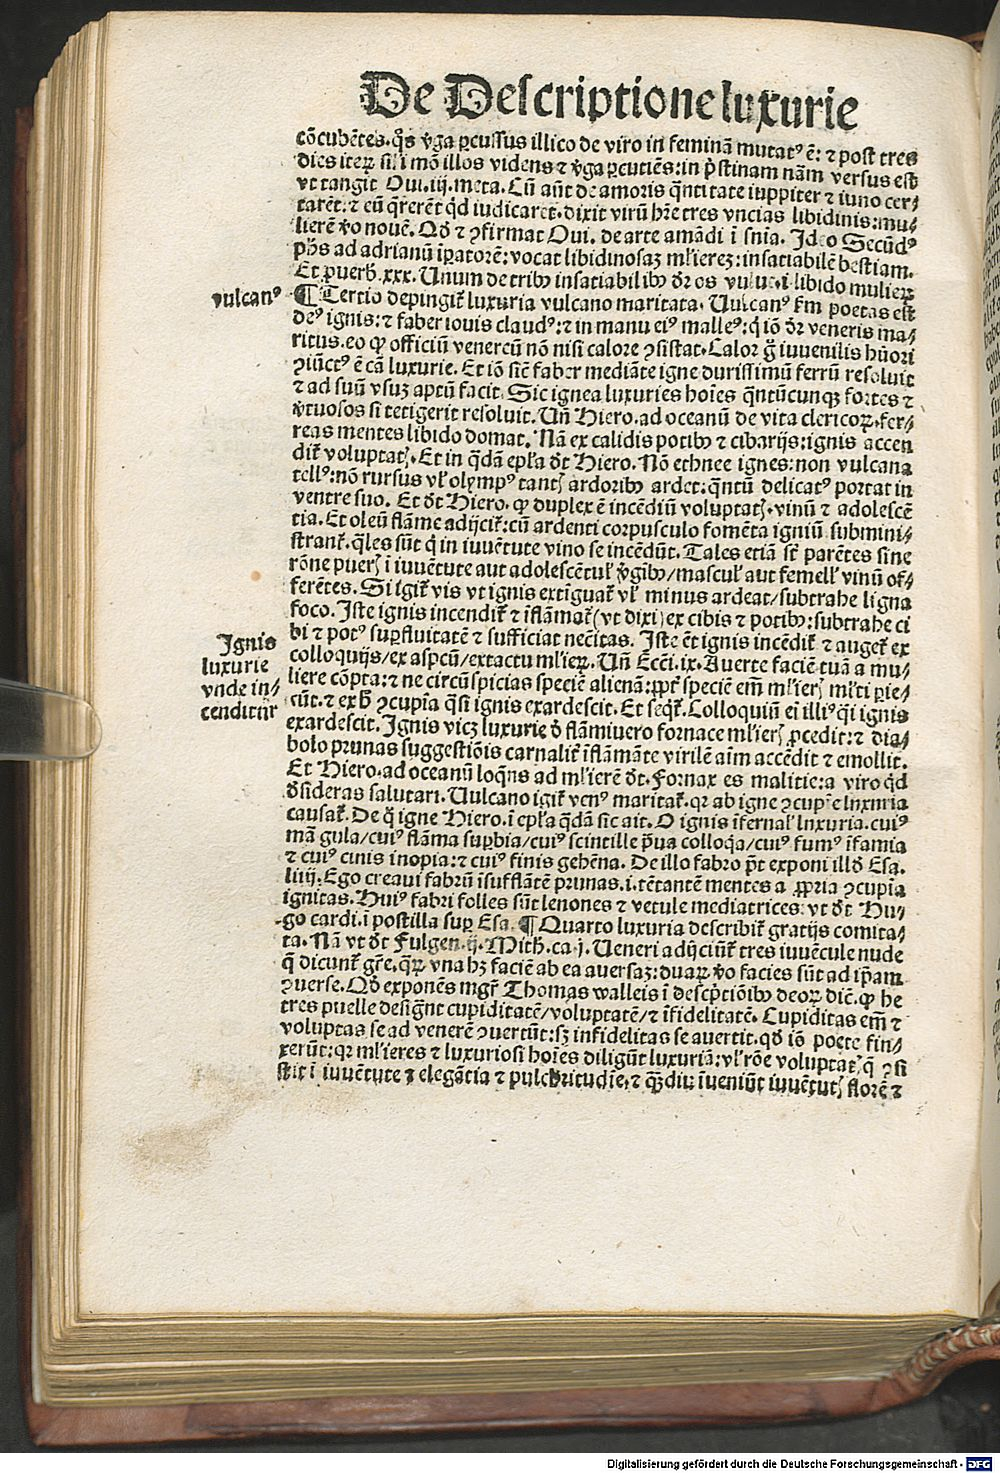 De Descriptione luxurie
cōcubētes. q̄s ꝟga ꝑcussus illico de viro in feminā mutatꝰ ē: ⁊ post tres
dies iteꝝ sil'i mō illos videns ⁊ ꝟga ꝑcutiēs: in p̄stinam nām versus est
vt tangit Oui. iij. meta. Cū aūt de amoris q̄ntitate iuppiter ⁊ iuno cer/
tarēt: ⁊ eū q̄rerēt qd iudicaret. dixit virū hr̄e tres vncias libidinis: mu/
lierē ꝟo nouē. Qd̓ ⁊ ꝯfirmat Oui. de arte amādi ī snīa. Ideo Secūdꝰ
ph̄s ad adrianū īꝑatorē: vocat libidinosaꝫ ml'iereꝫ: insatiabilē bestiam.
Et ꝓuerb̓. xxx. Unum de tribꝰ insatiabilibꝰ dr̄ os vulue. i. libido mulieꝝ
vulcanꝰ
¶ Tertio depingit̄ luxuria vulcano maritata. Uulcanꝰ fm poetas est
deꝰ ignis: ⁊ faber iouis claudꝰ: ⁊ in manu eiꝰ malleꝰ: q̇ iō dr̄ veneris ma/
ritus. eo ꝙ officiū venereū nō nisi calore ꝯsistat. Calor g̊ iuuenilis hūori
ꝯiūctꝰ ē cā luxurie. Et iō sicē faber mediāte igne durissimū ferrū resoluit
⁊ ad suū vsuꝫ aptū facit. Sic ignea luxuries hoīes q̄ntūcunqꝫ fortes ⁊
ꝟtuosos si tetigerit resoluit. Un̄ Hiero. ad oceanū de vita clericoꝝ. fer/
reas mentes libido domat. Nā ex calidis potibꝰ ⁊ cibarijs: ignis accen
dit̄ voluptatꝭ. Et in q̇dā epl'a dt̄ Hiero. Nō ethnee ignes: non vulcana
tellꝰ: nō rursus vl' olympꝰ tantꝭ ardoribꝰ ardet: q̄ntū delicatꝰ portat in
ventre suo. Et dt̄ Hiero. ꝙ duplex ē incēdiū voluptatꝭ. vinū ⁊ adolescē
tia. Et oleū flāme adijcit̄: cū ardenti corpusculo fomēta igniū submini/
strant̄. q̄les sūt q̇ in iuuētute vino se incēdūt. Tales etiā st̄ parētes sine
rōne puerꝭ ī iuuētute aut adolescētul' ꝟgibꝰ/ mascul' aut femell' vinū of/
ferētes. Si igit̄ vis vt ignis extīguat̄ vl' minus ardeat/ subtrahe ligna
foco. Iste ignis incendit̄ ⁊ īflāmat̄ (vt dixi) ex cibis ⁊ potibꝰ: subtrahe ci
bi ⁊ potꝰ suꝑfluitatē ⁊ sufficiat necītas. Iste ēt ignis incēdit̄ ⁊ auget̄ ex
Ignis
luxurie
vnde in/
cenditur
colloquijs/ ex aspcū/ ex tactu ml'ieꝝ. Un̄ Eccī. ix. Auerte faciē tuā a mu/
liere cōpta: ⁊ ne circūspicias speciē alienā: ꝓpt̄ speciē em̄ ml'ierꝭ ml'ti ꝑie/
rūt. ⁊ ex h̓ ꝯcupīa q̄si ignis exardescit. Et seqt̄. Colloquiū ei illiꝰ q̄i ignis
exardescit. Ignis viciꝫ luxurie d̓ flāmiuero fornace ml'ierꝭ ꝓcedit: ⁊ dia/
bolo prunas suggestiōis carnalit̄ īflāmāte virilē aīm accēdit ⁊ emollit.
Et Hiero. ad oceanū loq̄ns ad ml'ierē dt̄. Fornax es malitie: a viro qd̓
d̓sideras salutari. Uulcano igit̄ venꝰ maritat̄. qr ab igne ꝯcupīe luxuria
causat̄. De q̊ igne Hiero. ī epl'a q̇dā sic ait. O ignis īfernal' luxuria. cuiꝰ
mā gula/ cuiꝰ flāma suꝑbia/ cuiꝰ scintille p̄ua colloq̄a/ cuiꝰ fumꝰ īfamia
⁊ cuiꝰ cinis inopia: ⁊ cuiꝰ finis gehēna. De illo fabro pt̄ exponi illd̓ Esa.
liiij. Ego creaui fabrū īsufflātē prunas. i. tētantē mentes a ꝓpria ꝯcupīa
ignitas. Huiꝰ fabri folles sūt lenones ⁊ vetule mediatrices: vt dt̄ Hu/
go cardi. ī postilla suꝑ Esa. ¶ Quarto luxuria describit̄ gratijs comita/
ta. Nā vt dt̄ Fulgen. ij. Mith̓. ca. j. Ueneri adijciūt̄ tres iuuēcule nude
q̄ dicunt̄ gr̄e. q̄ꝝ vna hꝫ faciē ab ea auersaꝫ: duaꝝ ꝟo facies sūt ad ip̄am
ꝯuerse. Qd̓ exponēs mgr̄ Thomas walleis ī descp̄tiōibꝰ deoꝝ diē. ꝙ he
tres puelle designāt cupiditatē/ voluptatē/ ⁊ īfidelitatē. Cupiditas em̄ ⁊
voluptas se ad venerē ꝯuertūt: sꝫ infidelitas se auertit. qd̓ iō poete fin/
xerūt: qr ml'ieres ⁊ luxuriosi hoīes diligūt luxuriā: vl' rōe voluptatꝭ q̄ ꝯsi
stit ī iuuētute ⁊ elegātia ⁊ pulchritudīe. ⁊ q̄ꝫdiu īueniūt iuuētutꝭ florē ⁊
Digitalisierung gefördert durch die Deutsche Forschungsgemeinschaft - DFG